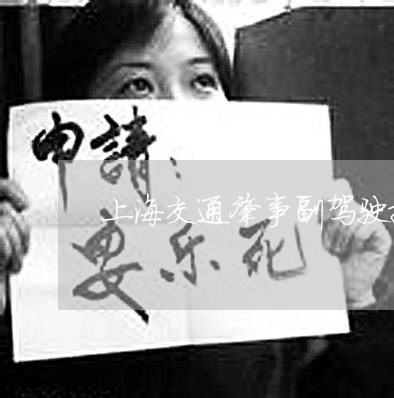 申請：
上海交通肇事副驾驶
安乐死